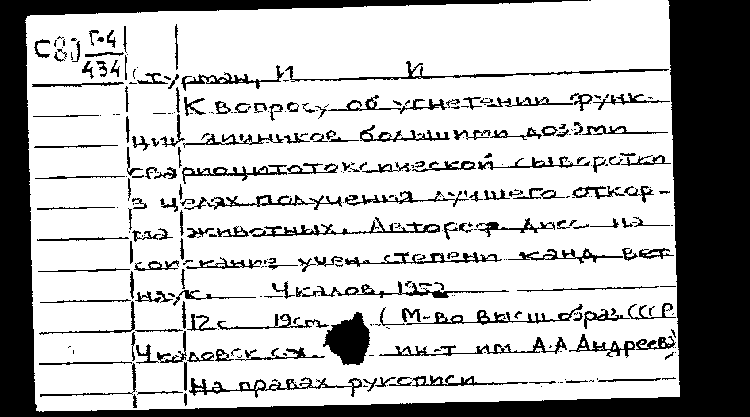 С80 Г-4
434
Стурман, И И
К вопросу об угнетении функ-
ции яичников большими дозами
овариоцитотоксической сыворотки
в целях получения лучшего откор-
ма животных. Автореф. дисс. на
соискание учен. степени канд. вет.
наук. Чкалов, 1952
12 с. 19см. (М-во высш. образ. СССР
Чкаловск с.-х. ин-т им. А.А. Андреева)
На правах рукописи